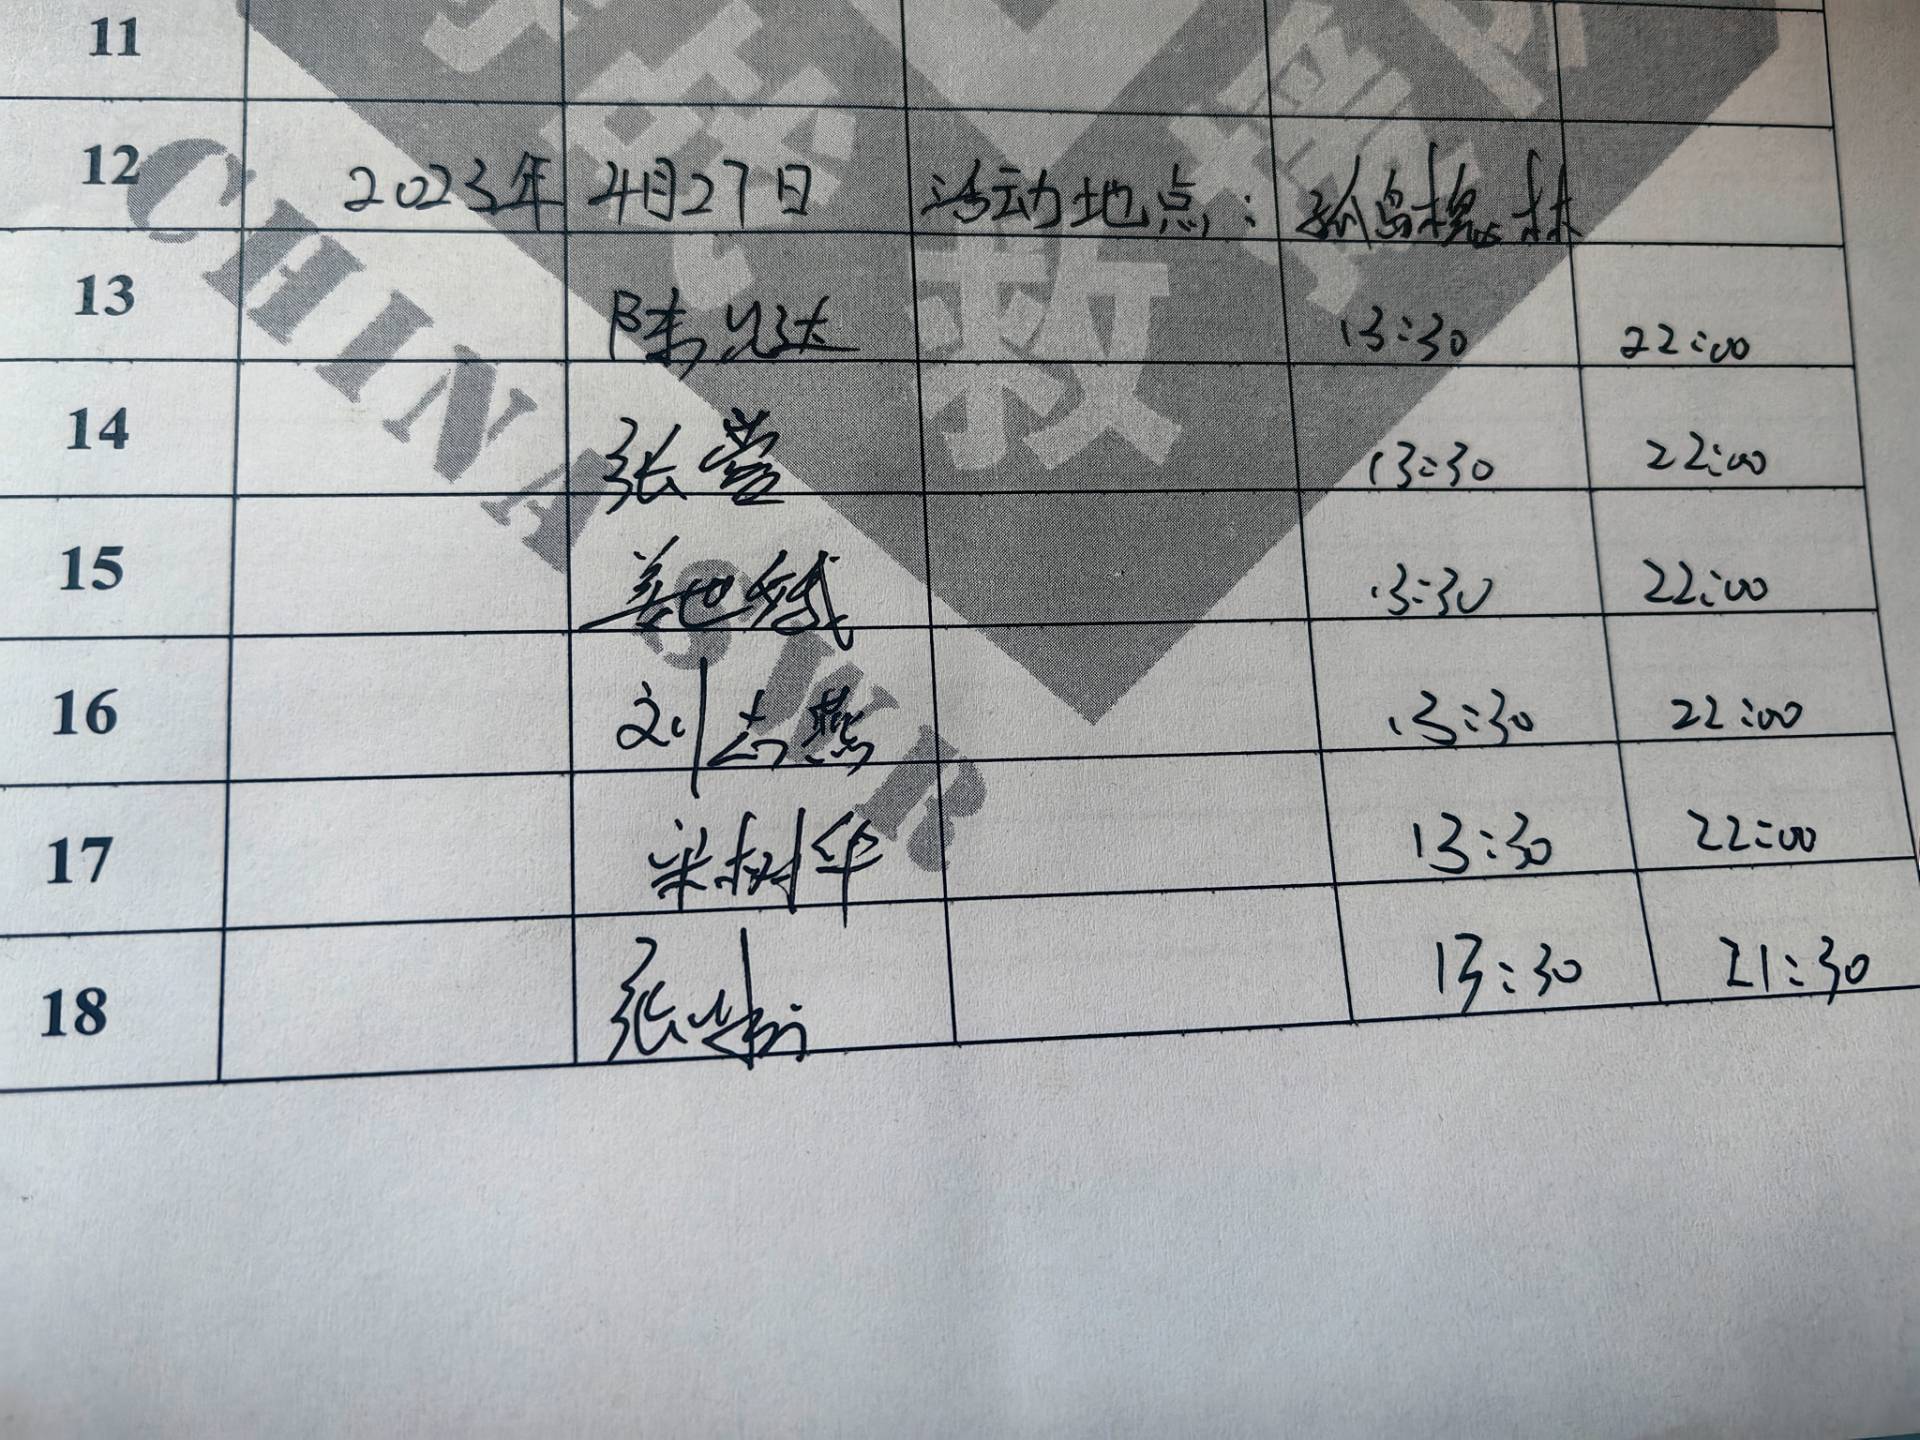 11
12 2023年 4月27日 活动地点: 孤岛槐林
13 陈 13:30 22:00
14 张营 13:30 22:00
15 13:30 22:00
16 刘吉燕 13:30 22:00
17 宋树华 13:30 22:00
18 张 13:30 21:30
救
CHINA